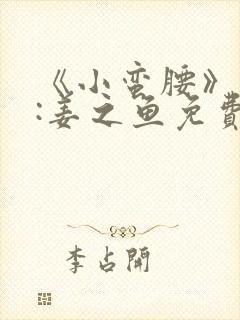 《小蛮腰》
:姜之鱼免費
李占開